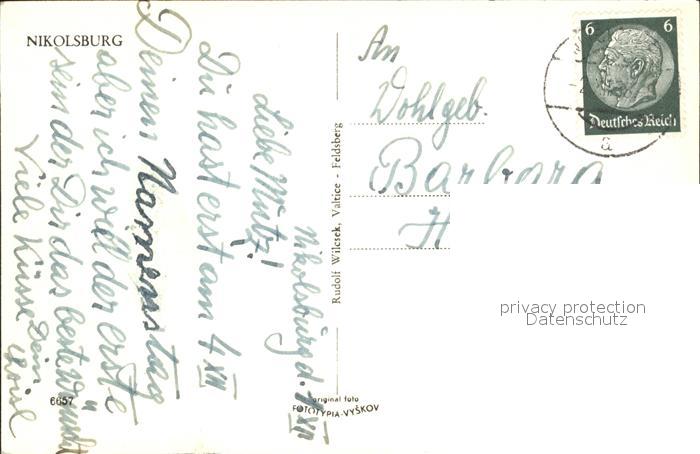 NIKOLSBURG
Nikolsburg d. 1 XII
Liebe Mütz!
Du hast erst am 4 XII
Deinen Namenstag
aber ich will der erste
sein der Dir das beste wünscht
Viele Küsse Dein
6657
Rudolf Wilcsek, Valtice - Feldsberg
original foto
FOTOTYPIA-VYŠKOV
6 6
Deutsches Reich
a
An
Wohlgeb.
Barbara
H
privacy protection
Datenschutz